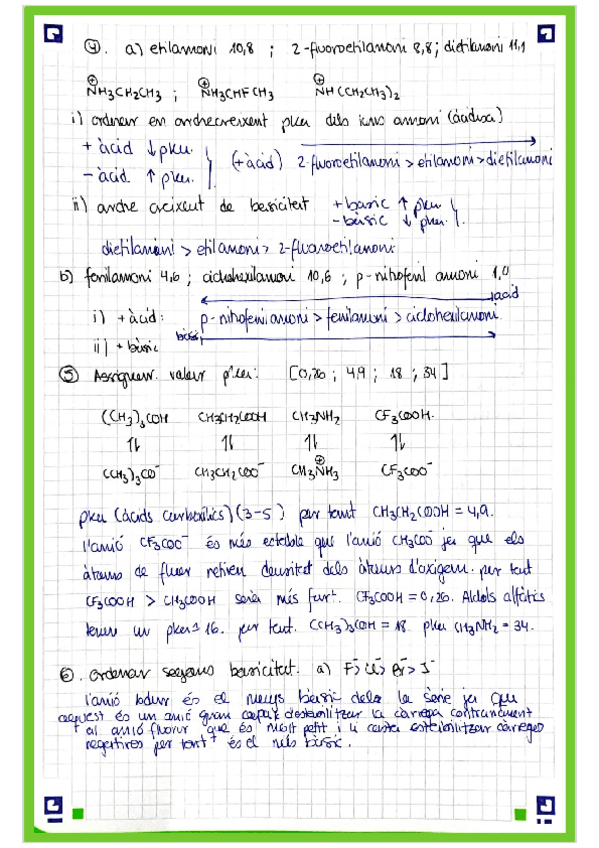 4. a) etilamoni 10,8 ; 2-fluoroetilamoni 8,8; dietilamoni 11,1
⊕NH3CH2CH3 ; ⊕NH3CHFCH3 ⊕NH(CCH2CH3)2
i) ordenar en ordre creixent pka dels ions amoni (àcidesa)
+ àcid ↓ pka.
- àcid ↑ pka.
(+àcid) 2-fluoroetilamoni > etilamoni > dietilamoni
ii) ordre creixent de basicitat +bàsic ↑ pka
-bàsic ↓ pka
dietilamoni > etilamoni > 2-fluoroetilamoni
b) fenilamoni 4,6 ; ciclohexilamoni 10,6 ; p-nitrofenil amoni 1,0
àcid
i) +àcid: p-nitrofenilamoni > fenilamoni > ciclohexilamoni
bàsic
ii) + bàsic
5 Assignar valor pka: [0,26 ; 4,9 ; 18 ; 34]
(CH3)3COH CH3CH2COOH CH3NH2 CF3COOH.
⇅ ⇅ ⇅ ⇅
(CH3)3CO⁻ CH3CH2COO⁻ CH3⊕NH3 CF3COO⁻
pka (àcids carboxílics) (3-5) per tant CH3CH2COOH = 4,9.
l'anió CF3COO⁻ és més estable que l'anió CH3COO⁻ ja que els
àtoms de fluor retiren densitat dels àtoms d'oxigen. per tant
CF3COOH > CH3COOH serà més fort. CF3COOH = 0,26. Alcohols alifàtics
tenen un pka ≥ 16. per tant. (CH3)3COH = 18 pka CH3NH2 = 34.
6. ordenar segons basicitat. a) F⁻ > Cl⁻ > Br⁻ > I⁻
l'anió Iodur és el menys bàsic de la sèrie ja que
aquest és un anió gran capaç d'estabilitzar la càrrega contràriament
al anió fluorur que és molt petit i li costa estabilitzar càrregues
negatives per tant és el més bàsic.